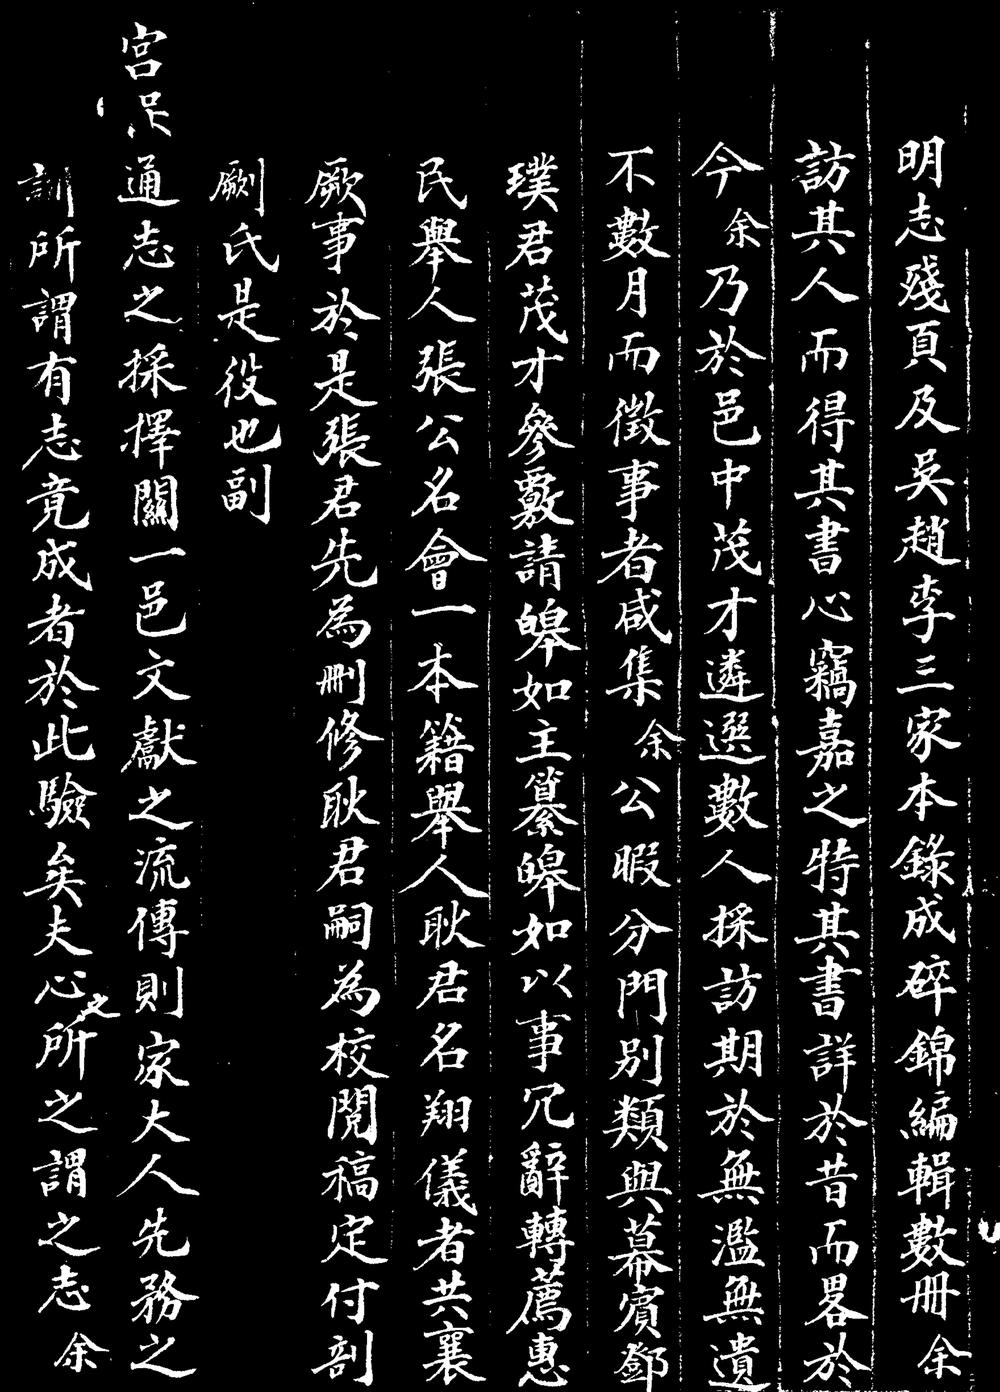 明志殘頁及吳趙李三家本錄成碎錦編輯數冊余
訪其人而得其書心竊嘉之特其書詳於昔而畧於
今余乃於邑中茂才遴選數人採訪期於無濫無遺
不數月而徵事者咸集余公暇分門別類與幕賓鄧
璞君茂才參覈請皞如主纂皞如以事冗辭轉薦惠
民舉人張公名會一本籍舉人耿君名翔儀者共襄
厥事於是張君先為刪修耿君嗣為校閱稿定付剖
劂氏是役也副
宮是通志之採擇關一邑文獻之流傳則家大人先務之
訓所謂有志竟成者於此驗矣夫心之所之謂之志余